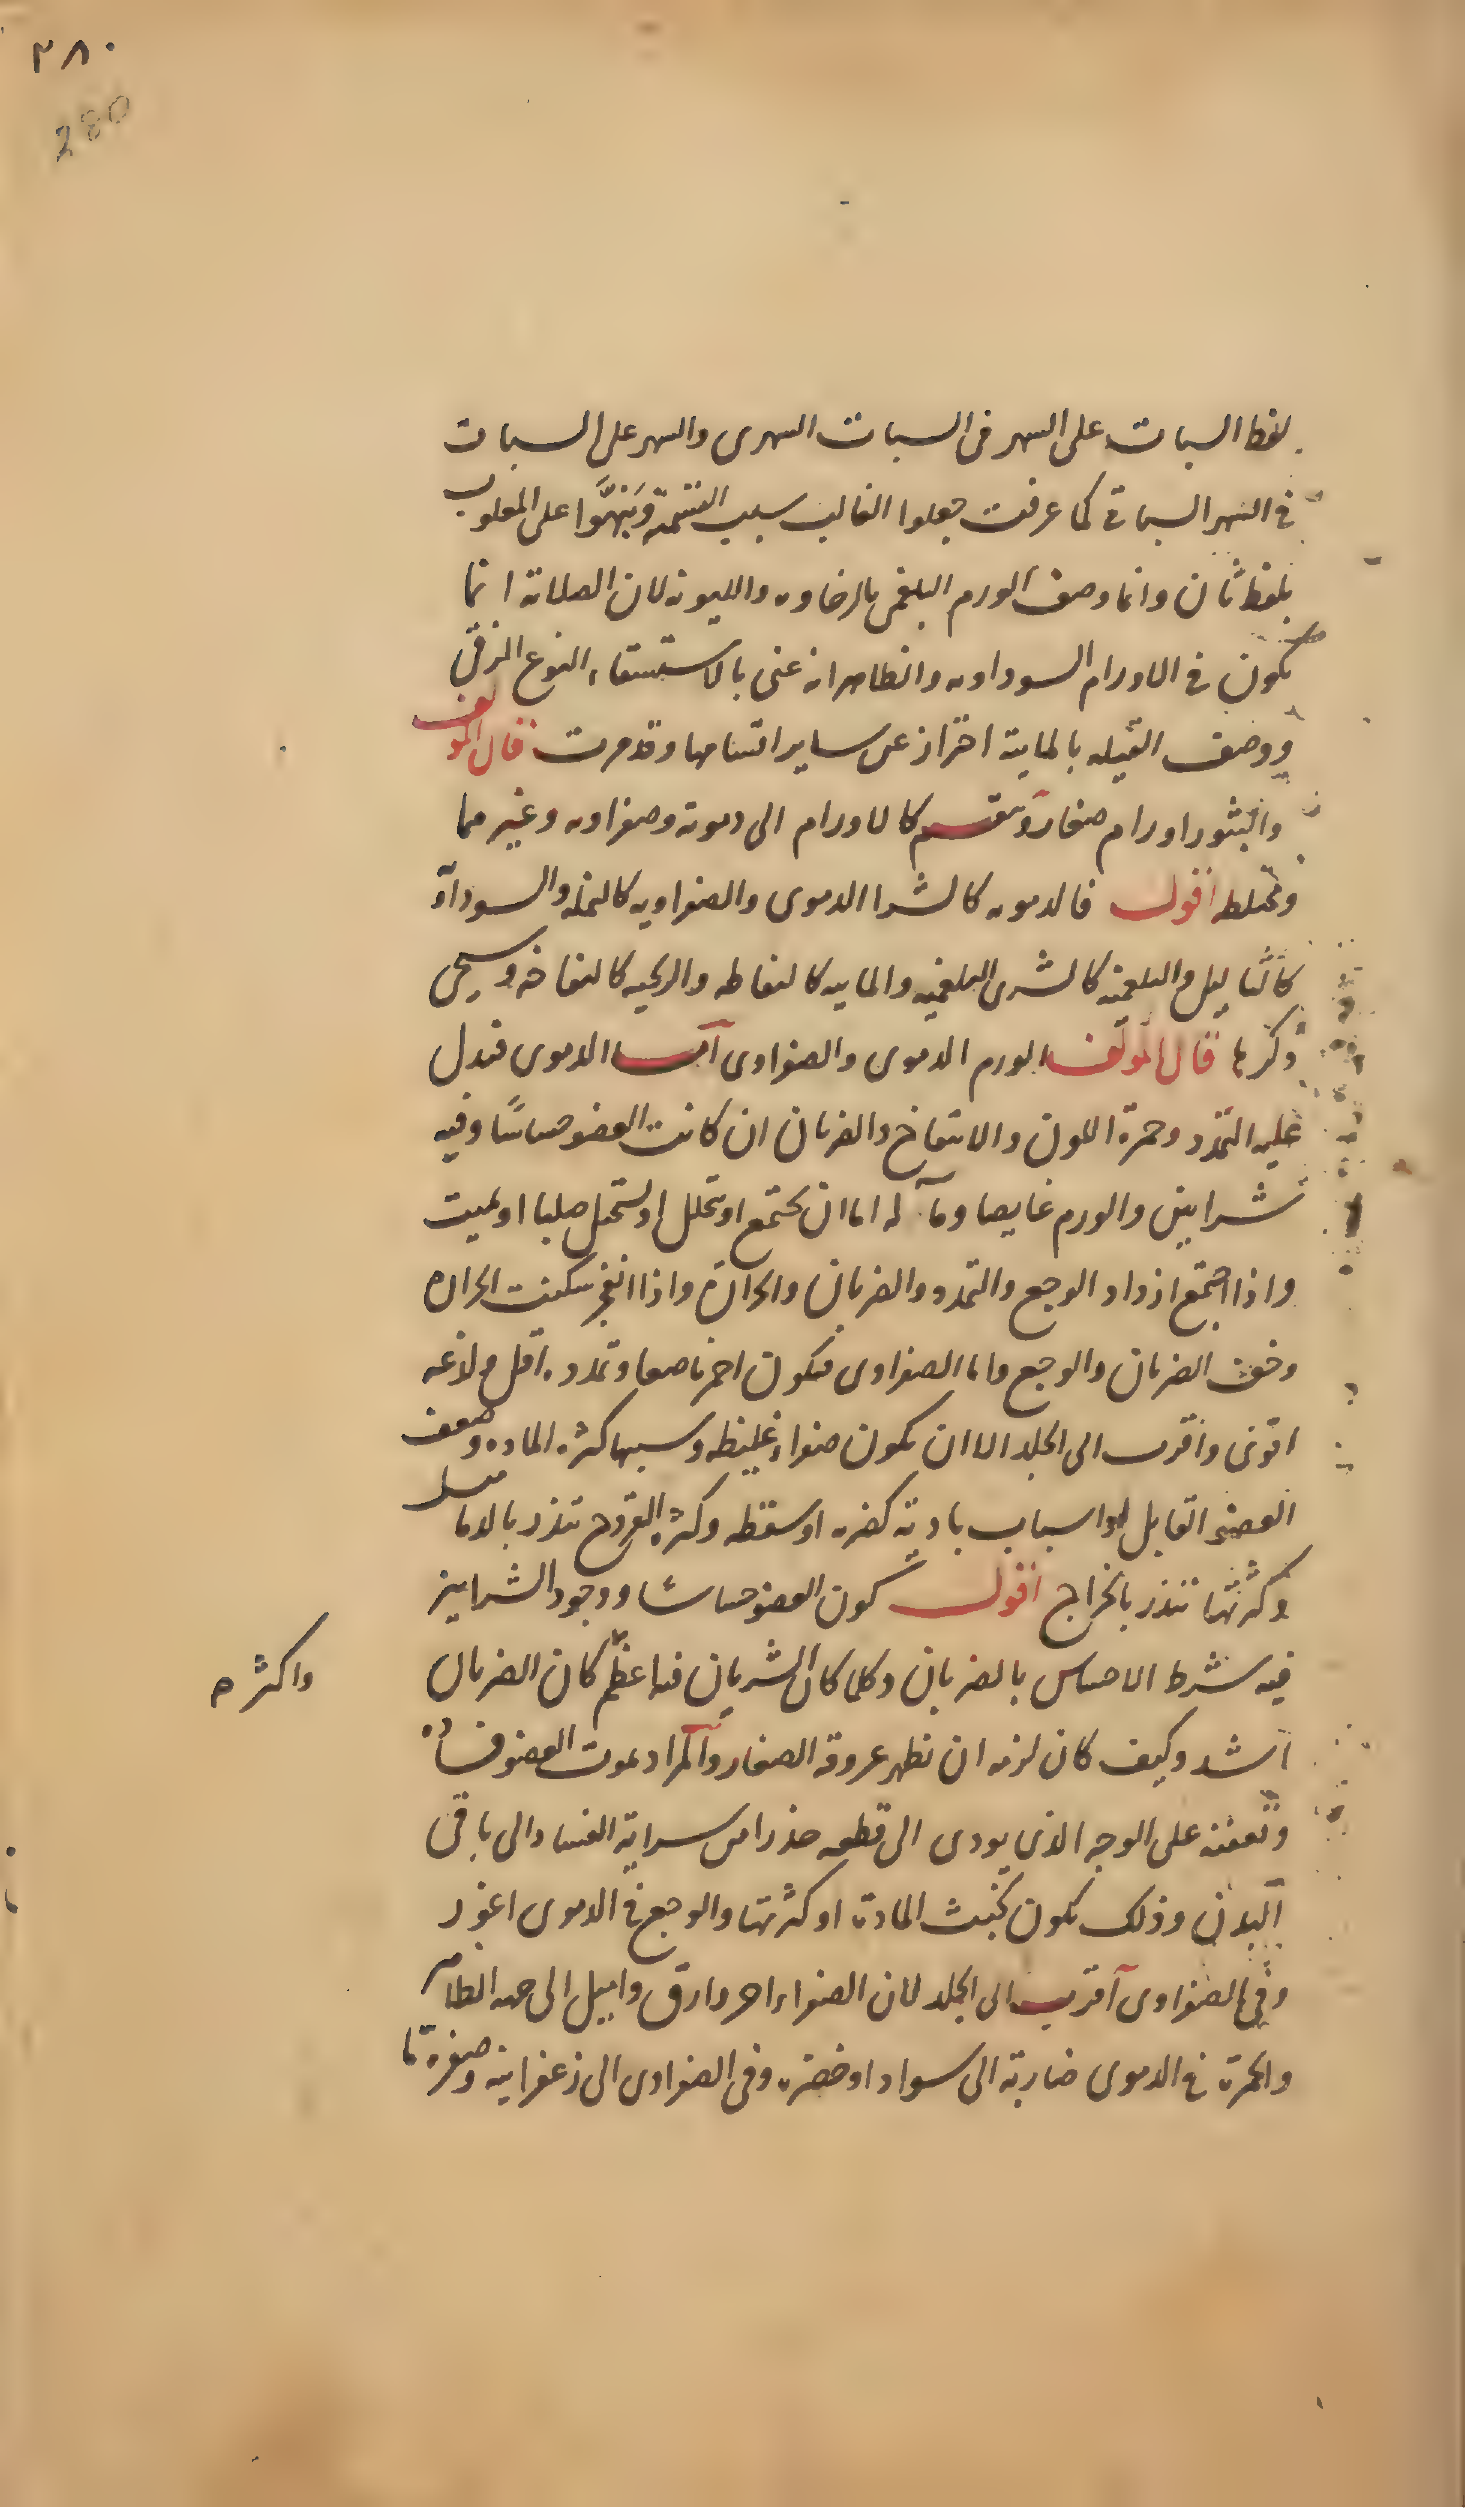 ٢٨٠
280
لفظ السبات على السهر فى السبات السهرى والسهر على السبات
فى السهر السباتى كما عرفت جعلوا الغالب سبب التسمية ونبهوا على المغلوب
بلفظ ثان وانما وصف الورم البلغمى بالرخاوه والليونه لان الصلابة انما
يكون فى الاورام السوداويه والظاهر انه عنى بالاستسقاء النوع الزقى
ووصف القيله بالمايية احتراز عن ساير اقسامها وقد مرت قال المولف
والبثور اورام صغار وتنقسم كالاورام الى دموية وصفراويه وغيرهما
ومختلطه اقول فالدمويه كالشرا الدموى والصفراويه كالنمله والسوداوية
كالثاليل والبلغميه كالشرى البلغميه والماييه كالنفاطه والريحيه كالنفاخه وسيجى
ذكرها قال المولف الورم الدموى والصفراوى اما الدموى فيدل
عليه التمدد وحمرة اللون والانتفاخ والضربان ان كانت العضو حساسا وفيه
شرايين والورم غايصا وماله اما ان يجتمع او يتحلل او يستحيل صلبا او يميت
واذا اجتمع ازداد الوجع والتمدد والضربان والحرارة واذا انفجر سكنت الحراره
وخف الضربان والوجع واما الصفراوى فيكون احمر ناصعا وتمدده اقل ولذعه
اقوى واقرب الى الجلد الا ان يكون صفراء غليظه وسببها كثره الماده وضعف
العضو القابل او اسباب بادية كضربه او سقطه وكثره القروح تنذر بالدماميل
وكثرتها تنذر بالخراج اقول كون العضو حساسا ووجود الشرايين
فيه شرط الاحساس بالضربان وكلما كان الشريان فيه اعظم كان الضربان
واكثره
اشد وكيف كان لزمه ان تظهر عروقه الصغار والمراد بموت العضو فساده
وتعفنه على الوجه الذى يودى الى قطعه حذرا من سراية الفساد الى باقى
البدن وذلك يكون لخبث المادة او كثرتها والوجع فى الدموى اغور
وفى الصفراوى اقرب الى الجلد لان الصفراء احر وارق واميل الى جهه الظاهر
والحمرة فى الدموى ضاربة الى سواد او خضره وفى الصفراوى الى زعفرانية وصفرة ما